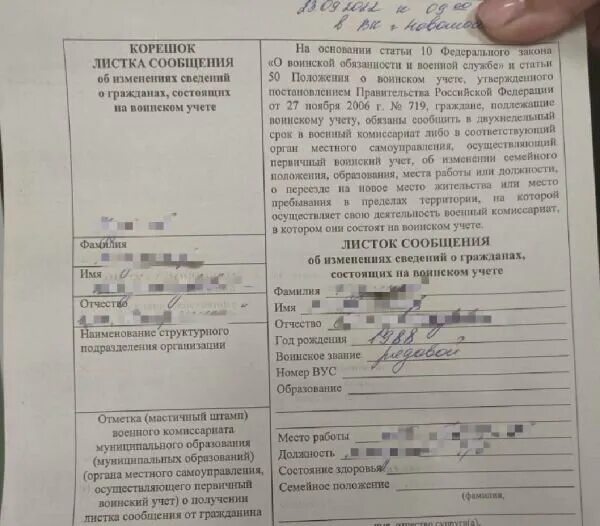 23.09.2022 к 09
в ВК г.
КОРЕШОК
ЛИСТКА СООБЩЕНИЯ
об изменениях сведений
о гражданах, состоящих
на воинском учете
Фамилия
Имя
Отчество
Наименование структурного
подразделения организации
Отметка (мастичный штамп)
военного комиссариата
муниципального образования
(муниципальных образований)
(органа местного самоуправления,
осуществляющего первичный
воинский учет) о получении
листка сообщения от гражданина
На основании статьи 10 Федерального закона
«О воинской обязанности и военной службе» и статьи
50 Положения о воинском учете, утвержденного
постановлением Правительства Российской Федерации
от 27 ноября 2006 г. № 719, граждане, подлежащие
воинскому учету, обязаны сообщить в двухнедельный
срок в военный комиссариат либо в соответствующий
орган местного самоуправления, осуществляющий
первичный воинский учет, об изменении семейного
положения, образования, места работы или должности,
о переезде на новое место жительства или место
пребывания в пределах территории, на которой
осуществляет свою деятельность военный комиссариат,
в котором они состоят на воинском учете.
ЛИСТОК СООБЩЕНИЯ
об изменениях сведений о гражданах,
состоящих на воинском учете
Фамилия
Имя
Отчество
Год рождения 1988
Воинское звание рядовой
Номер ВУС
Образование
Место работы
Должность
Состояние здоровья
Семейное положение
(фамилия,